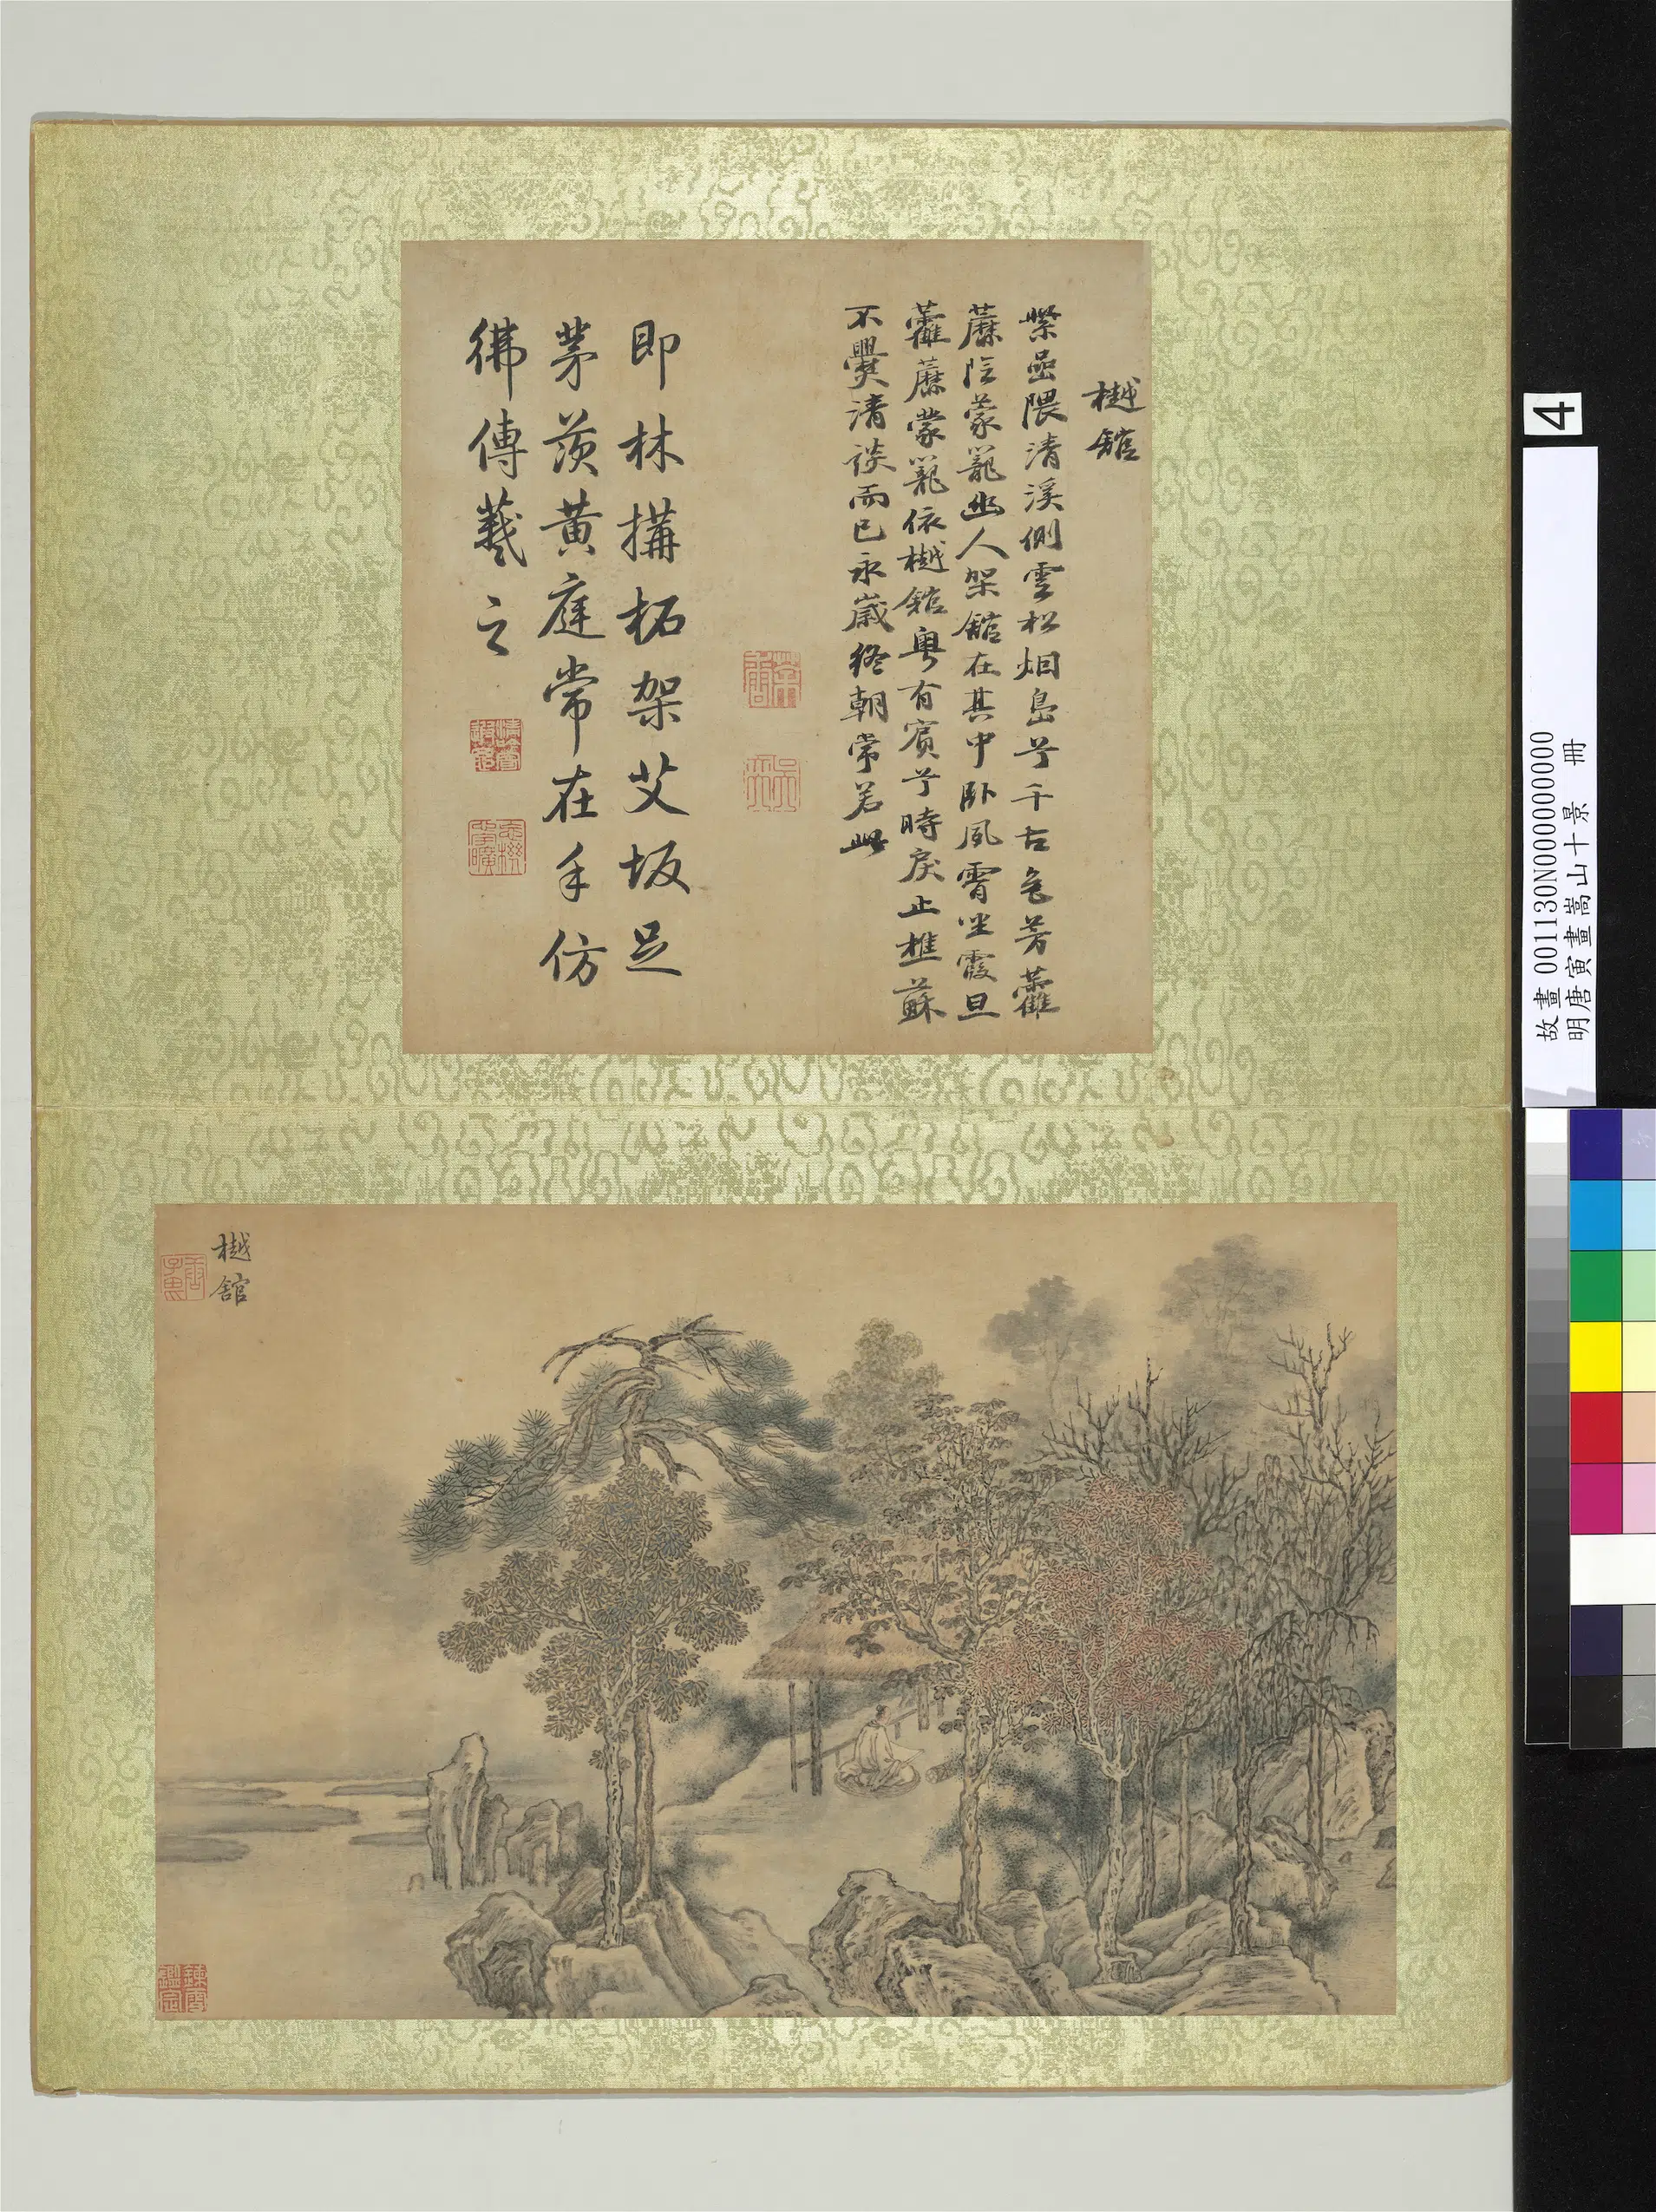 樾舘
紫嵒隈清溪側雲松烟島兮千古色芳藿
蘼陰蒙籠幽人架舘在其中卧風霄坐霞旦
藿蘼蒙籠依樾舘粵有賓兮時戾止樵蘇
不爨清談而已永歲終朝常若此
即林搆柘架艾坂足
茅茨黃庭常在手仿
彿傳羲之
樾舘
4
故畫 001130N000000000
明唐寅畫嵩山十景 冊